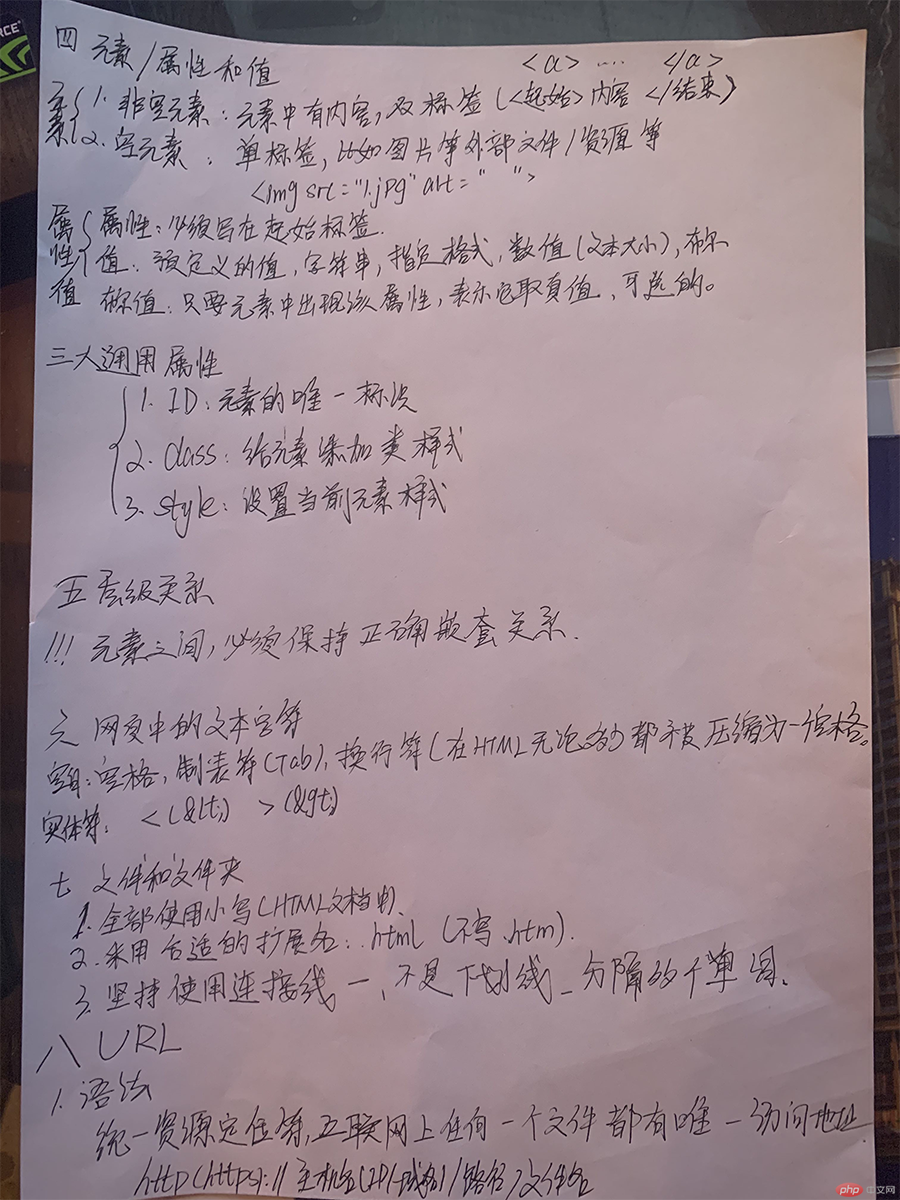 四 元素/属性和值 <a> .... </a>
元素 1. 非空元素: 元素中有内容, 双标签 (<起始> 内容 </结束>)
2. 空元素: 单标签, 比如图片等外部文件/资源等
<img src="1.jpg" alt=" ">
属性 属性: 必须写在起始标签.
值 值: 预定义的值, 字符串, 指定格式, 数值 (文本大小), 布尔
布尔值: 只要元素中出现该属性, 表示它取真值、可选的。
三大通用属性
1. ID: 元素的唯一标识
2. class: 给元素添加类样式
3. style: 设置当前元素样式
五 层级关系
!!! 元素之间, 必须保持正确嵌套关系.
六 网页中的文本字符
空白: 空格, 制表符 (Tab), 换行符 (在HTML无论多少都被压缩为一个空格。
实体符: < (&lt;) > (&gt;)
七 文件和文件夹
1. 全部使用小写 (HTML文档中).
2. 采用合适的扩展名: .html (不写 .htm).
3. 坚持使用连接线 -, 不是下划线 _ 分隔的个单词.
八 URL
1. 语法
统一资源定位符, 互联网上任何一个文件都有唯一访问地址
http(https):// 主机名(IP/域名)/路径/文件名
php 中文网